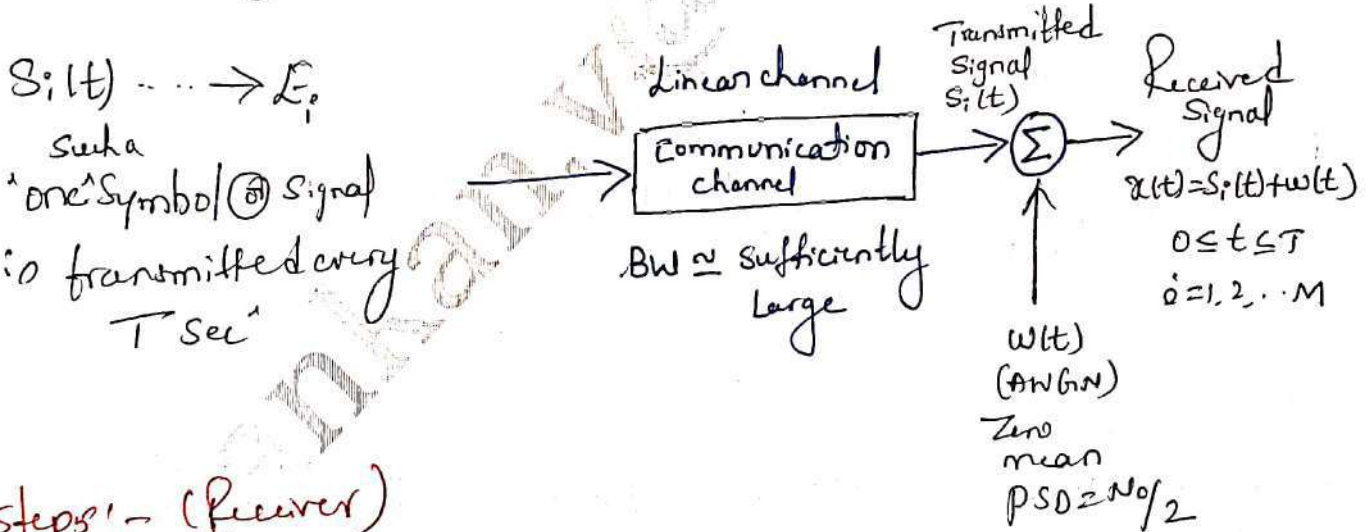 Si(t) ..... → Ei
Such a
'one' Symbol/ Signal
is transmitted every
T Sec'
Linear channel
Communication
channel
BW ≃ Sufficiently
Large
Transmitted
Signal
Si(t)
Σ
Received
Signal
x(t)=Si(t)+w(t)
0≤t≤T
i=1,2,..M
w(t)
(AWGN)
Zero
mean
PSD=No/2
Steps:- (Receiver)